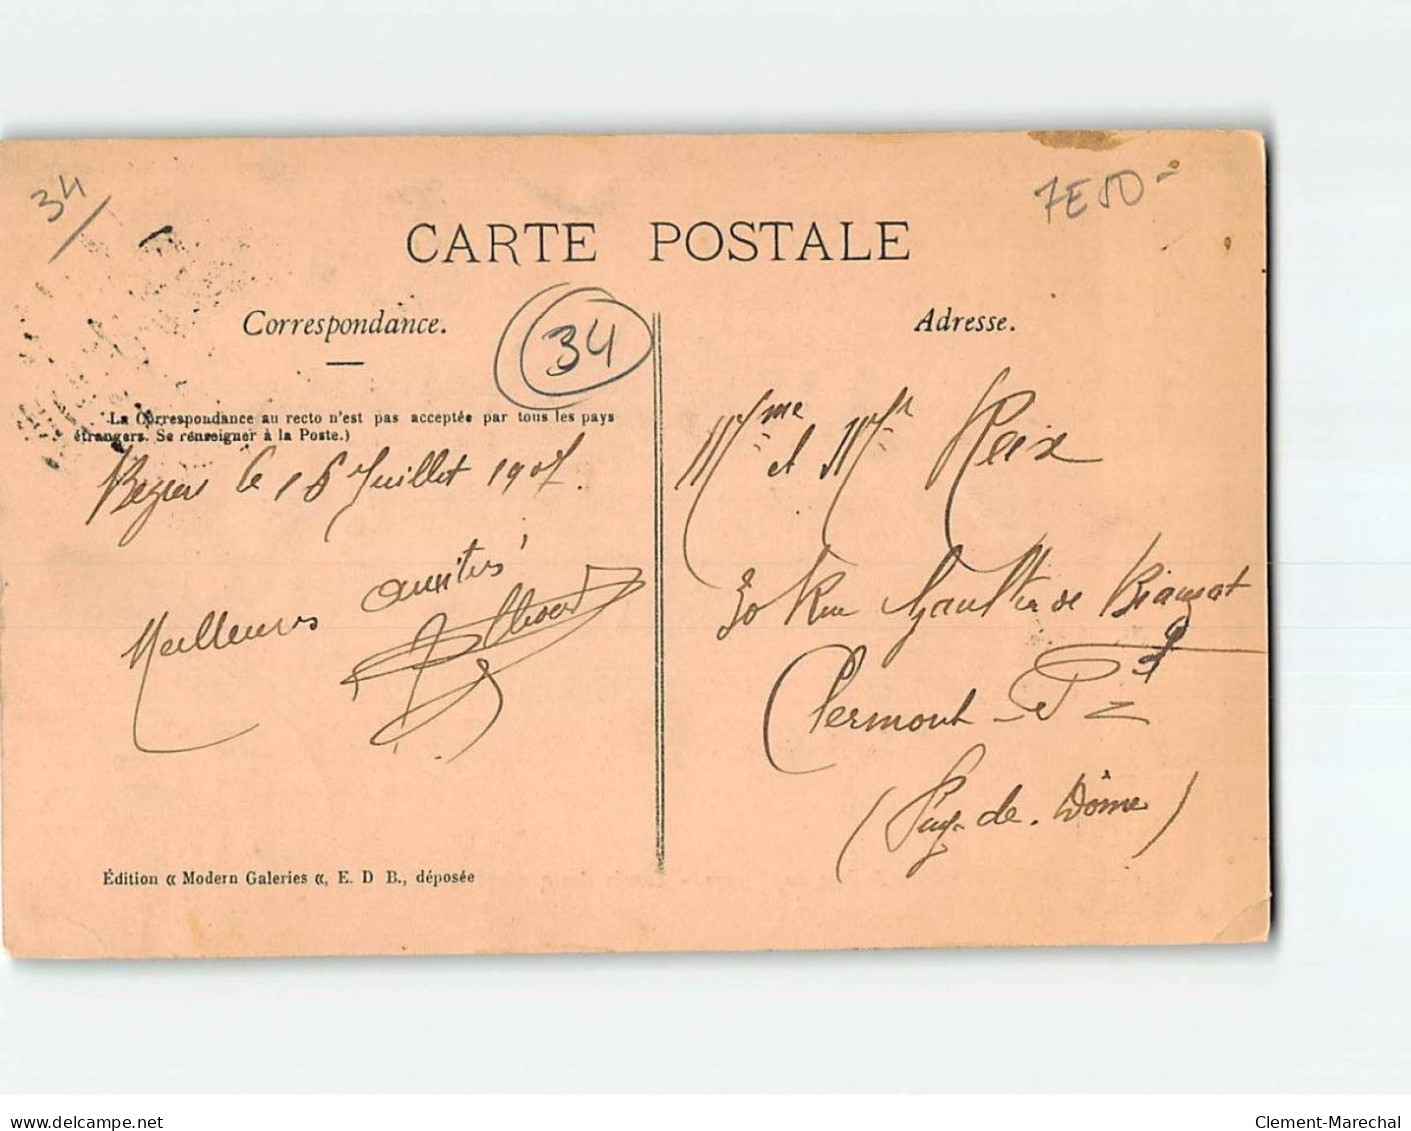 34
7E80-
CARTE POSTALE
Correspondance.
34
Adresse.
La Correspondance au recto n'est pas acceptée par tous les pays
étrangers. Se renseigner à la Poste.)
Beziers le 18 Juillet 1907.
Meilleures amitiés
Mme et Mr Heix
30 Rue Gaultier de Biauzat
Clermont-Fd
(Puy-de-Dôme)
Édition « Modern Galeries «, E. D B., déposée
www.delcampe.net
Clement-Marechal